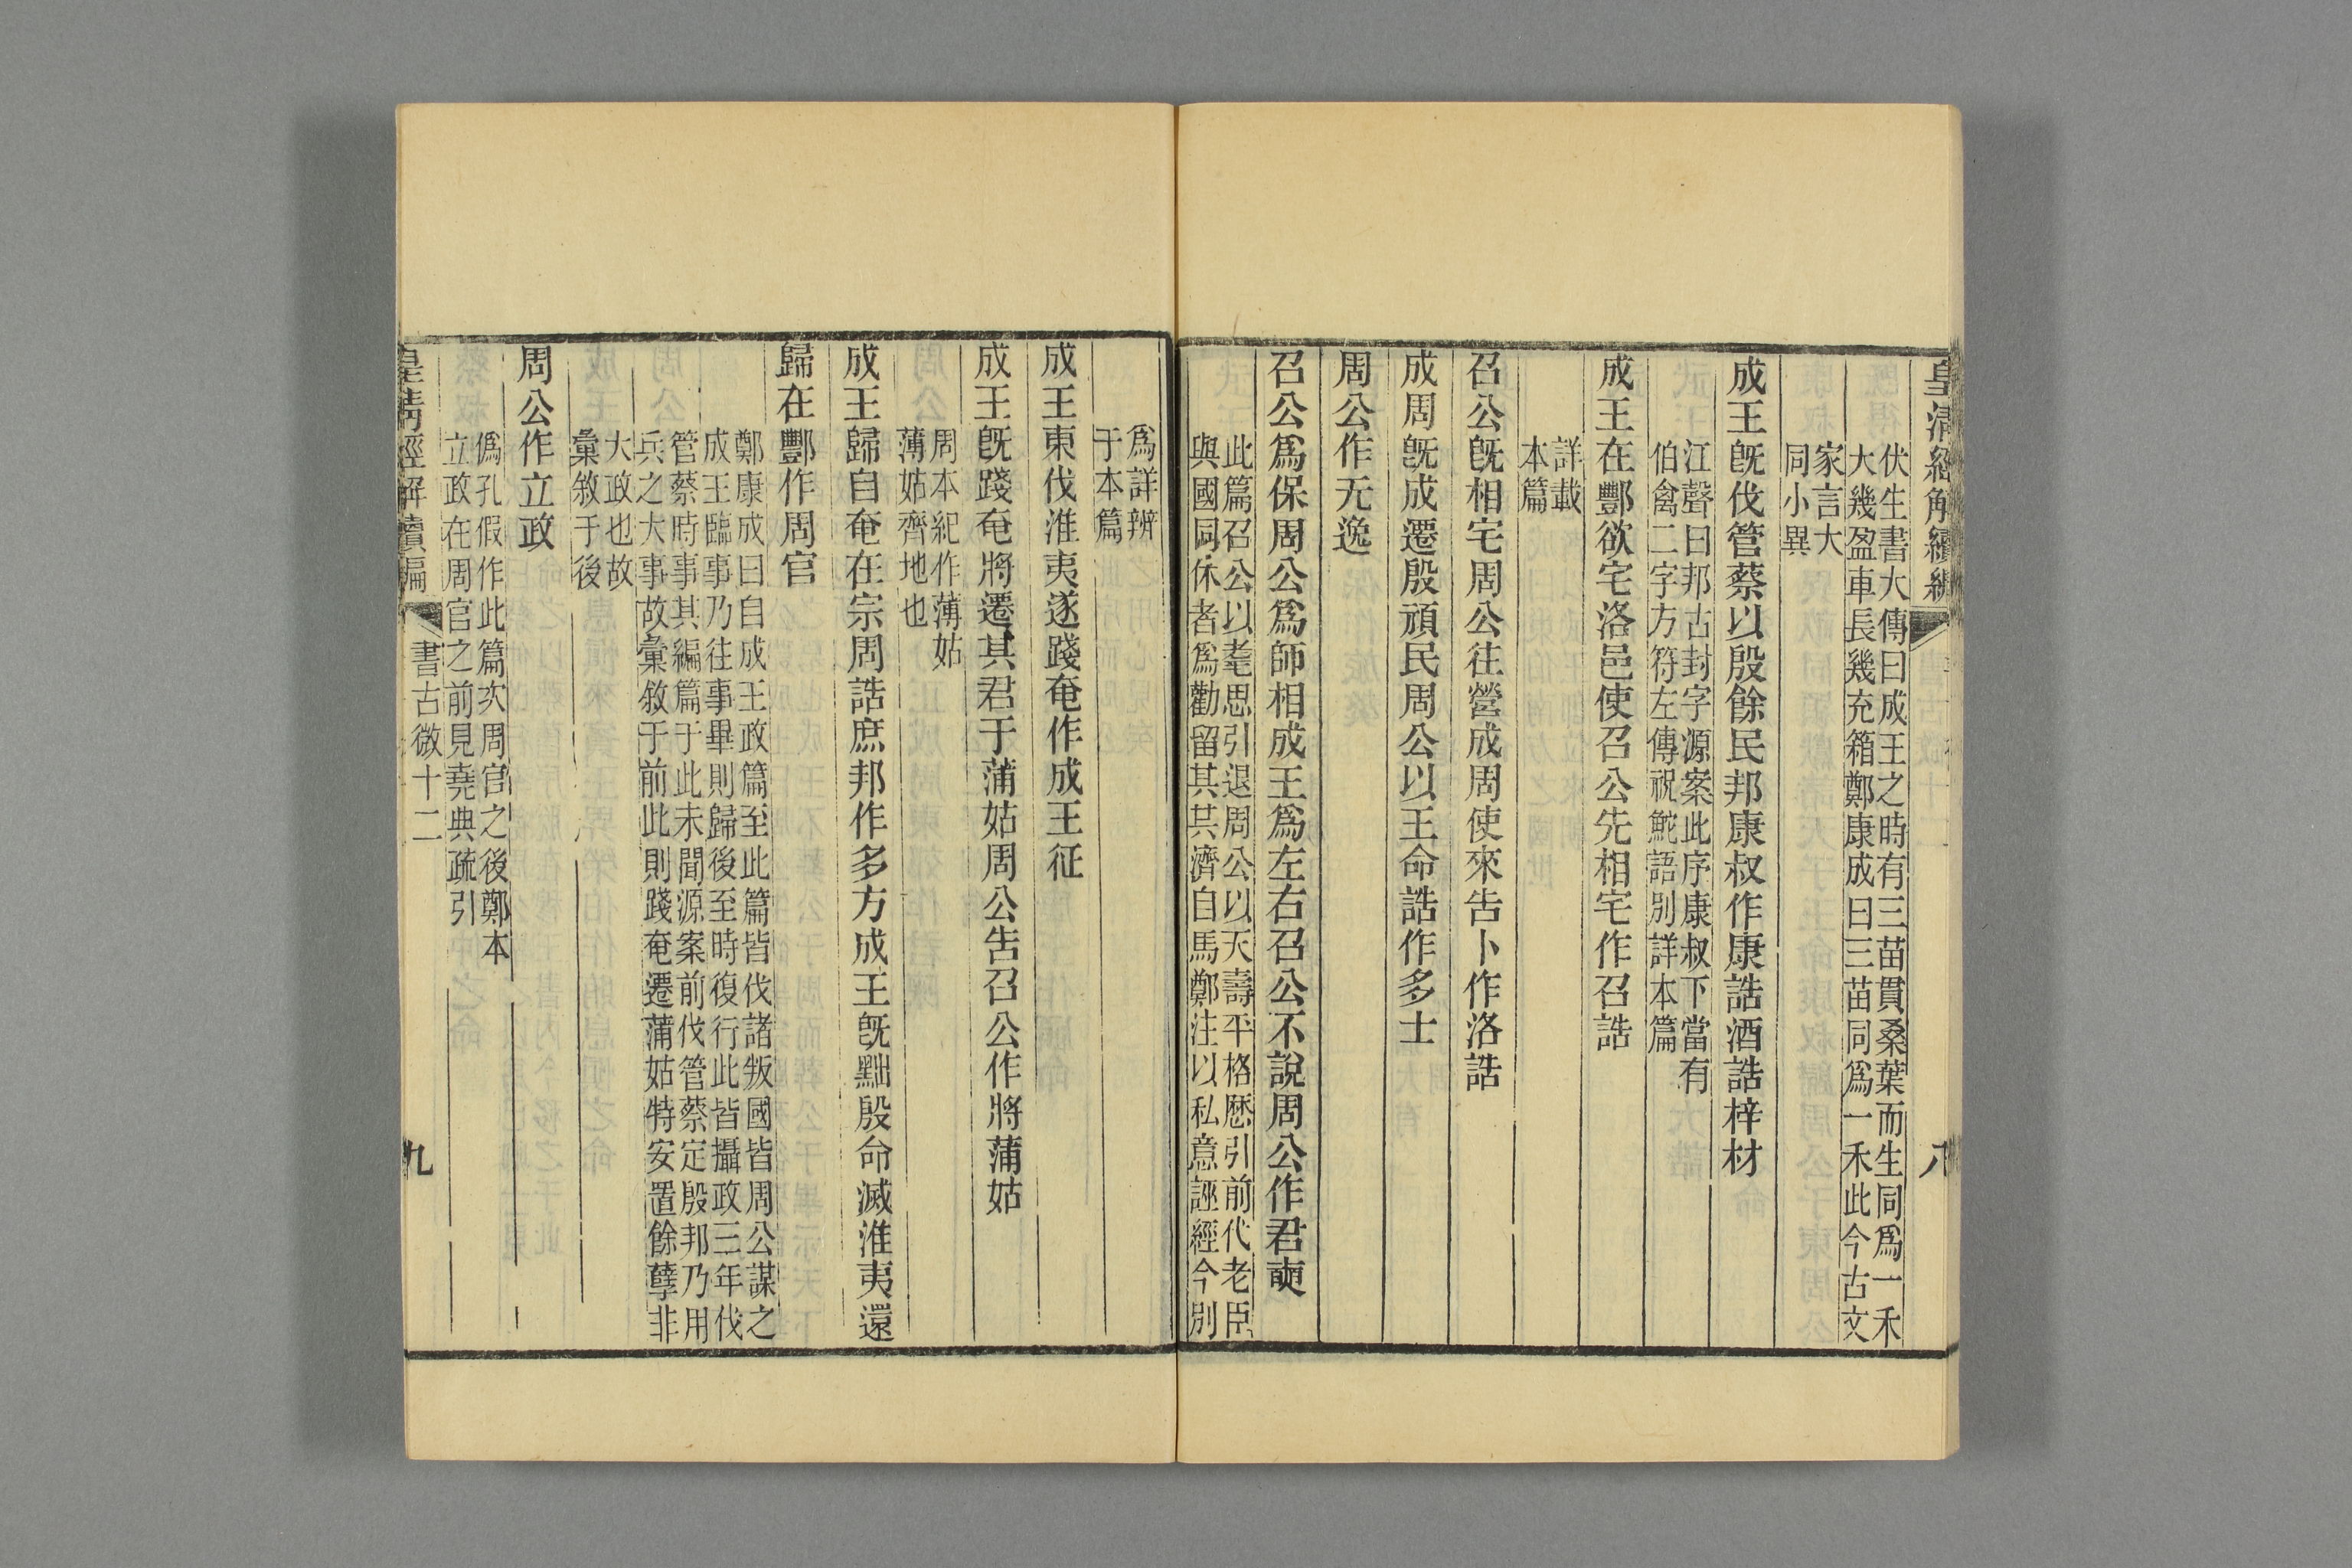 皇清經解續編
八
伏生書大傳曰成王之時有三苗貫桑葉而生同爲一禾
大幾盈車長幾充箱鄭康成曰三苗同爲一禾此今古文
家言大
同小異
成王旣伐管蔡以殷餘民邦康叔作康誥酒誥梓材
江聲曰邦古封字源案此序康叔下當有
伯禽二字方符左傳祝鮀語別詳本篇
成王在酆欲宅洛邑使召公先相宅作召誥
詳載
本篇
召公旣相宅周公往營成周使來告卜作洛誥
成周旣成遷殷頑民周公以王命誥作多士
周公作无逸
召公爲保周公爲師相成王爲左右召公不說周公作君奭
此篇召公以耄思引退周公以天壽平格厯引前代老臣
與國同休者爲勸留其共濟自馬鄭注以私意誣經今別
爲詳辨
于本篇
成王東伐淮夷遂踐奄作成王征
成王旣踐奄將遷其君于蒲姑周公告召公作將蒲姑
周本紀作薄姑
薄姑齊地也
成王歸自奄在宗周誥庶邦作多方成王旣黜殷命滅淮夷還
歸在酆作周官
鄭康成曰自成王政篇至此篇皆伐諸叛國皆周公謀之
成王臨事乃往事畢則歸後至時復行此皆攝政三年伐
管蔡時事其編篇于此未聞源案前伐管蔡定殷邦乃用
兵之大事故彙敘于前此則踐奄遷蒲姑特安置餘孽非
大政也故
彙敘于後
周公作立政
僞孔假作此篇次周官之後鄭本
立政在周官之前見堯典疏引
皇清經解續編
書古微十二
九